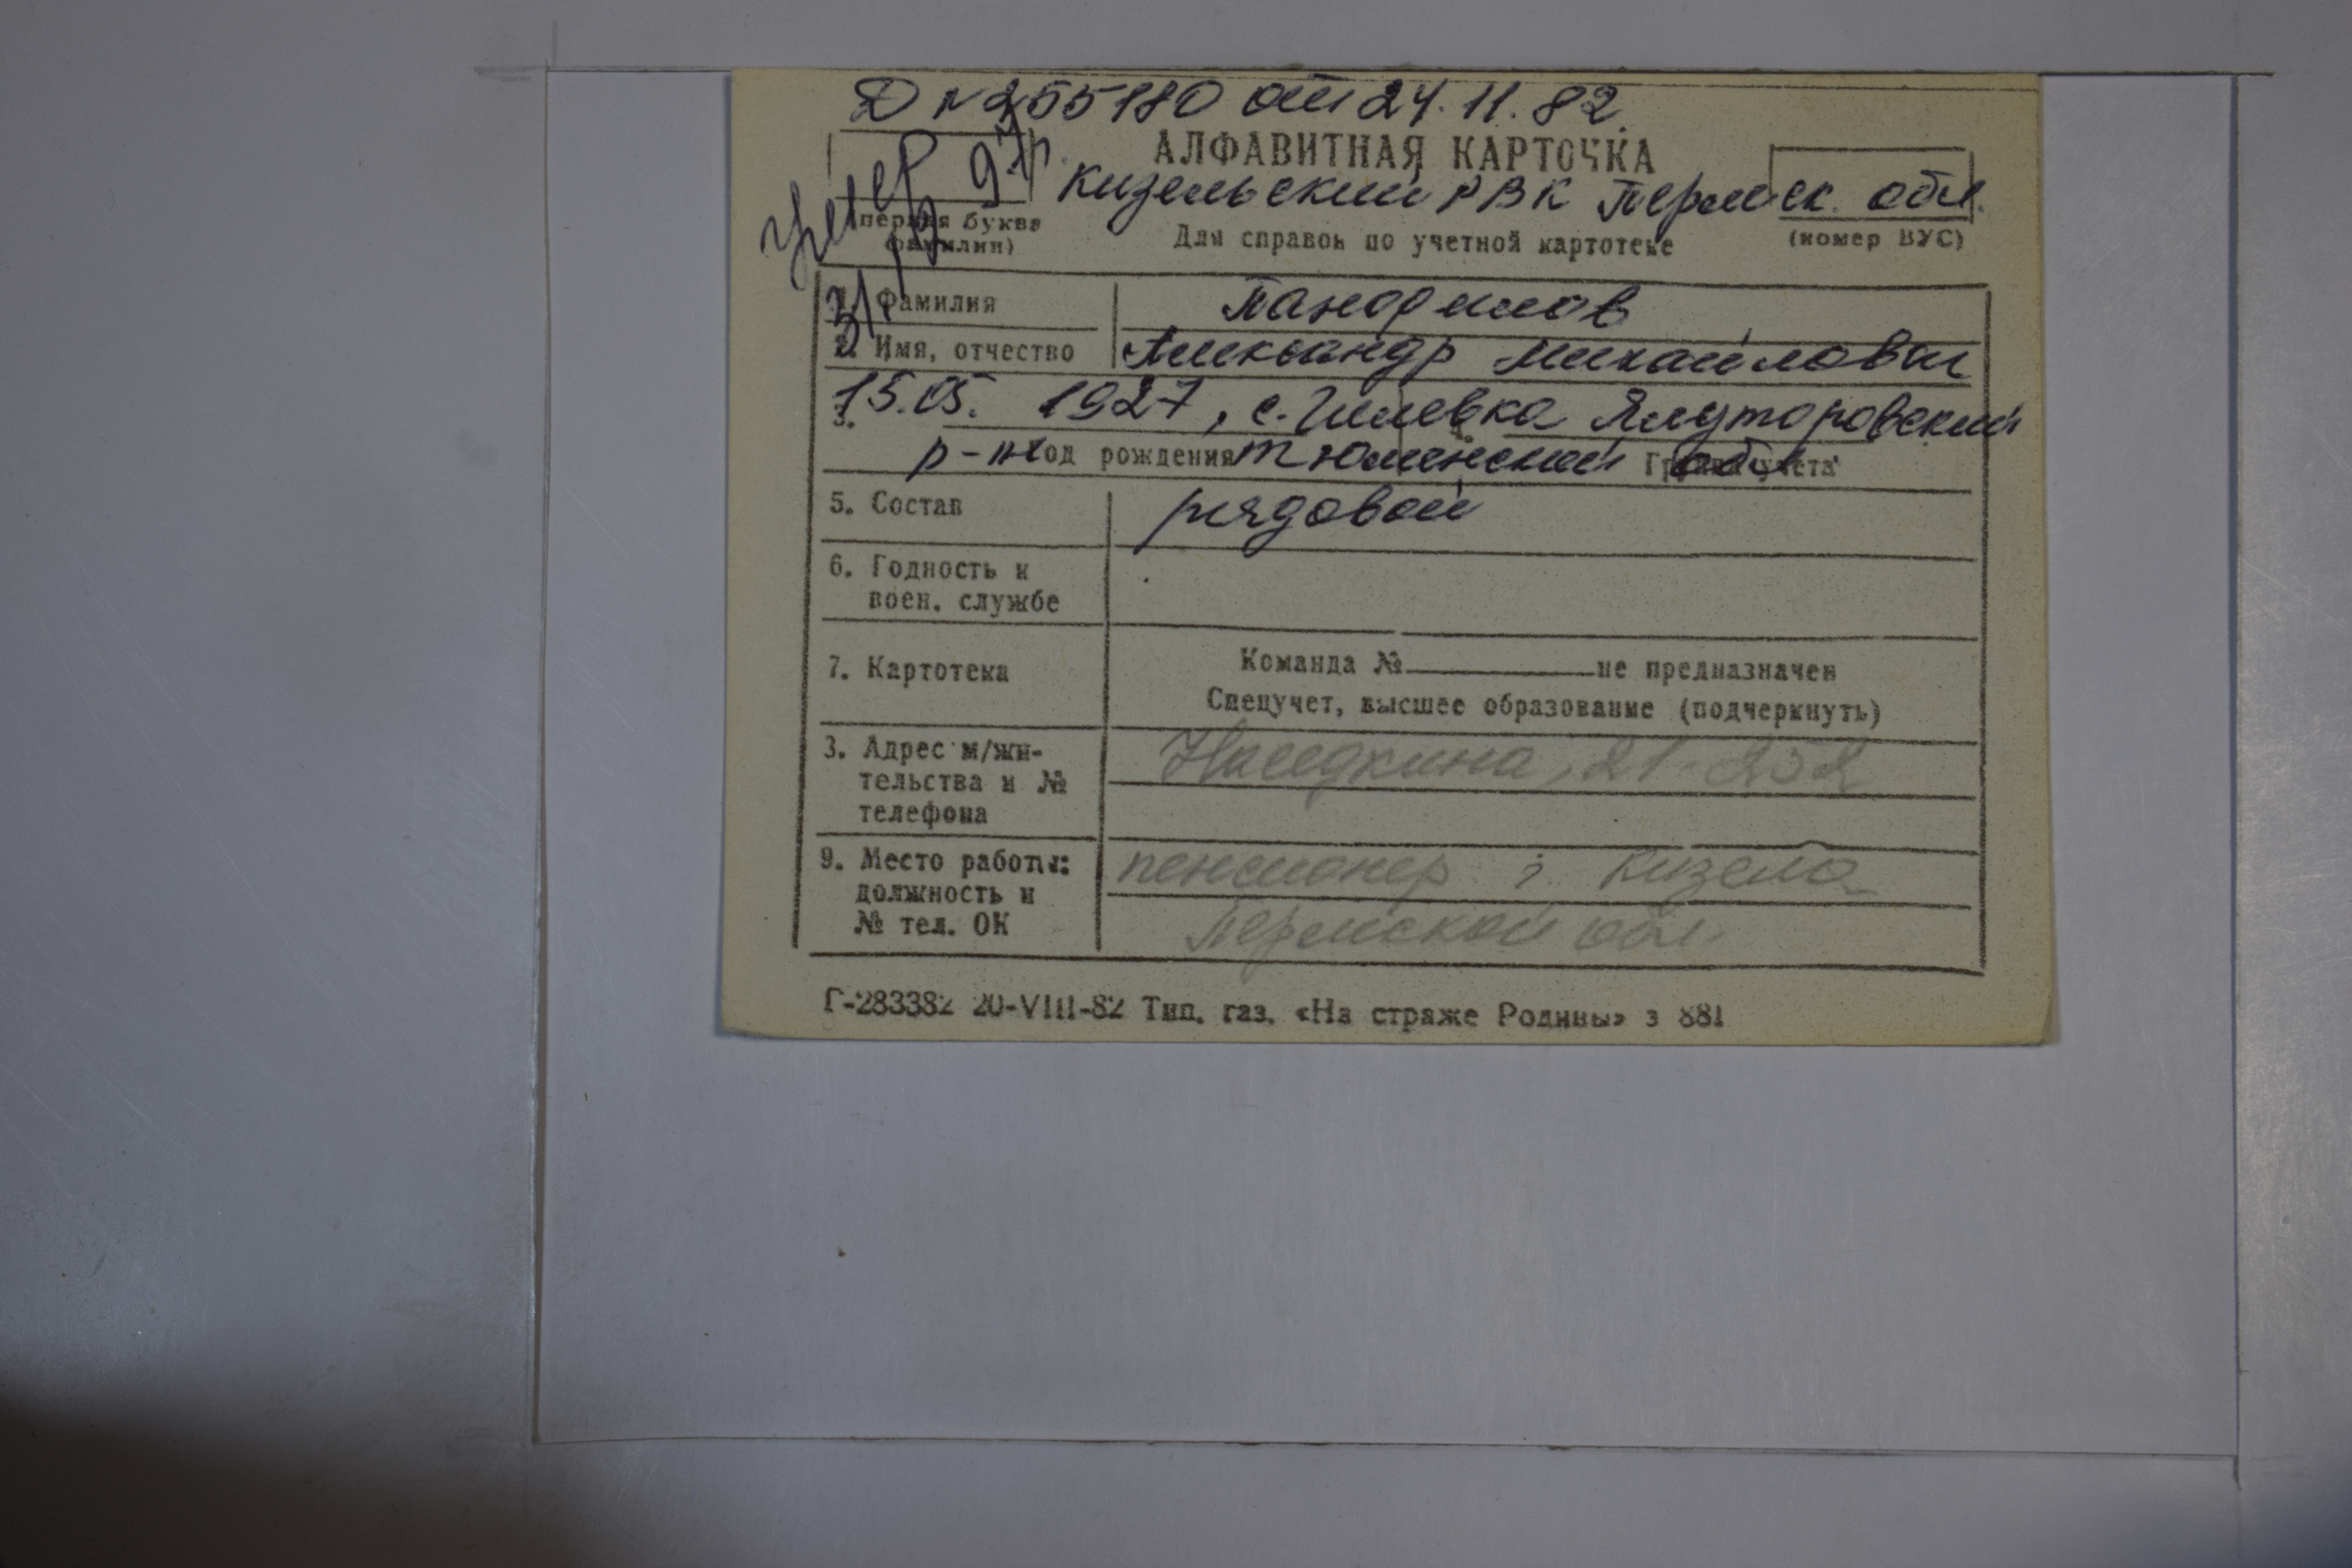 Д № 255180 от 24.11.82
АЛФАВИТНАЯ КАРТОЧКА
Кизельский РВК Пермск. обл.
умер 97г.
(первая буква фамилии)
Для справок по учетной картотеке
(номер ВУС)
Фамилия
2. Имя, отчество Александр Михайлович
3. 15.05. 1927, с. Гилевка Ялуторовский
р-н Год рождения Тюменский обл. Группа учета
5. Состав рядовой
6. Годность к
воен. службе
7. Картотека Команда № не предназначен
Спецучет, высшее образование (подчеркнуть)
3. Адрес м/жи-
тельства и №
телефона
Наседкина, 21-252
9. Место работы:
должность и
№ тел. ОК
пенсионер г. Кизела
Пермской обл.
Г-283382 20-VIII-82 Тип. газ. «На страже Родины» з 881